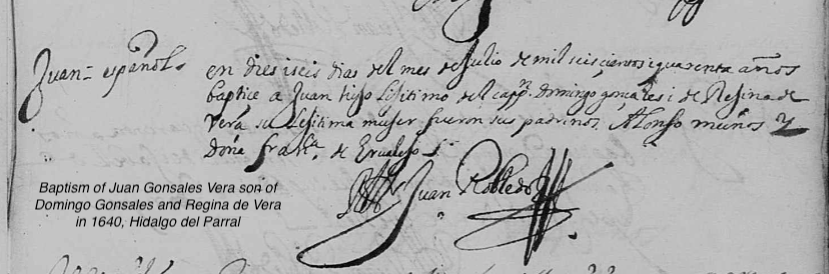 Juan - español
en dies iseis dias del mes de Julio de mil seiscientos i quarenta años
baptice a Juan hijo lejitimo del capp.n Domingo gonçales i de Regina de
Vera su lejitima mujer fueron sus padrinos, Alonso muños y
Doña fran.ca de
Juan Robledo
Baptism of Juan Gonsales Vera son of
Domingo Gonsales and Regina de Vera
in 1640, Hidalgo del Parral